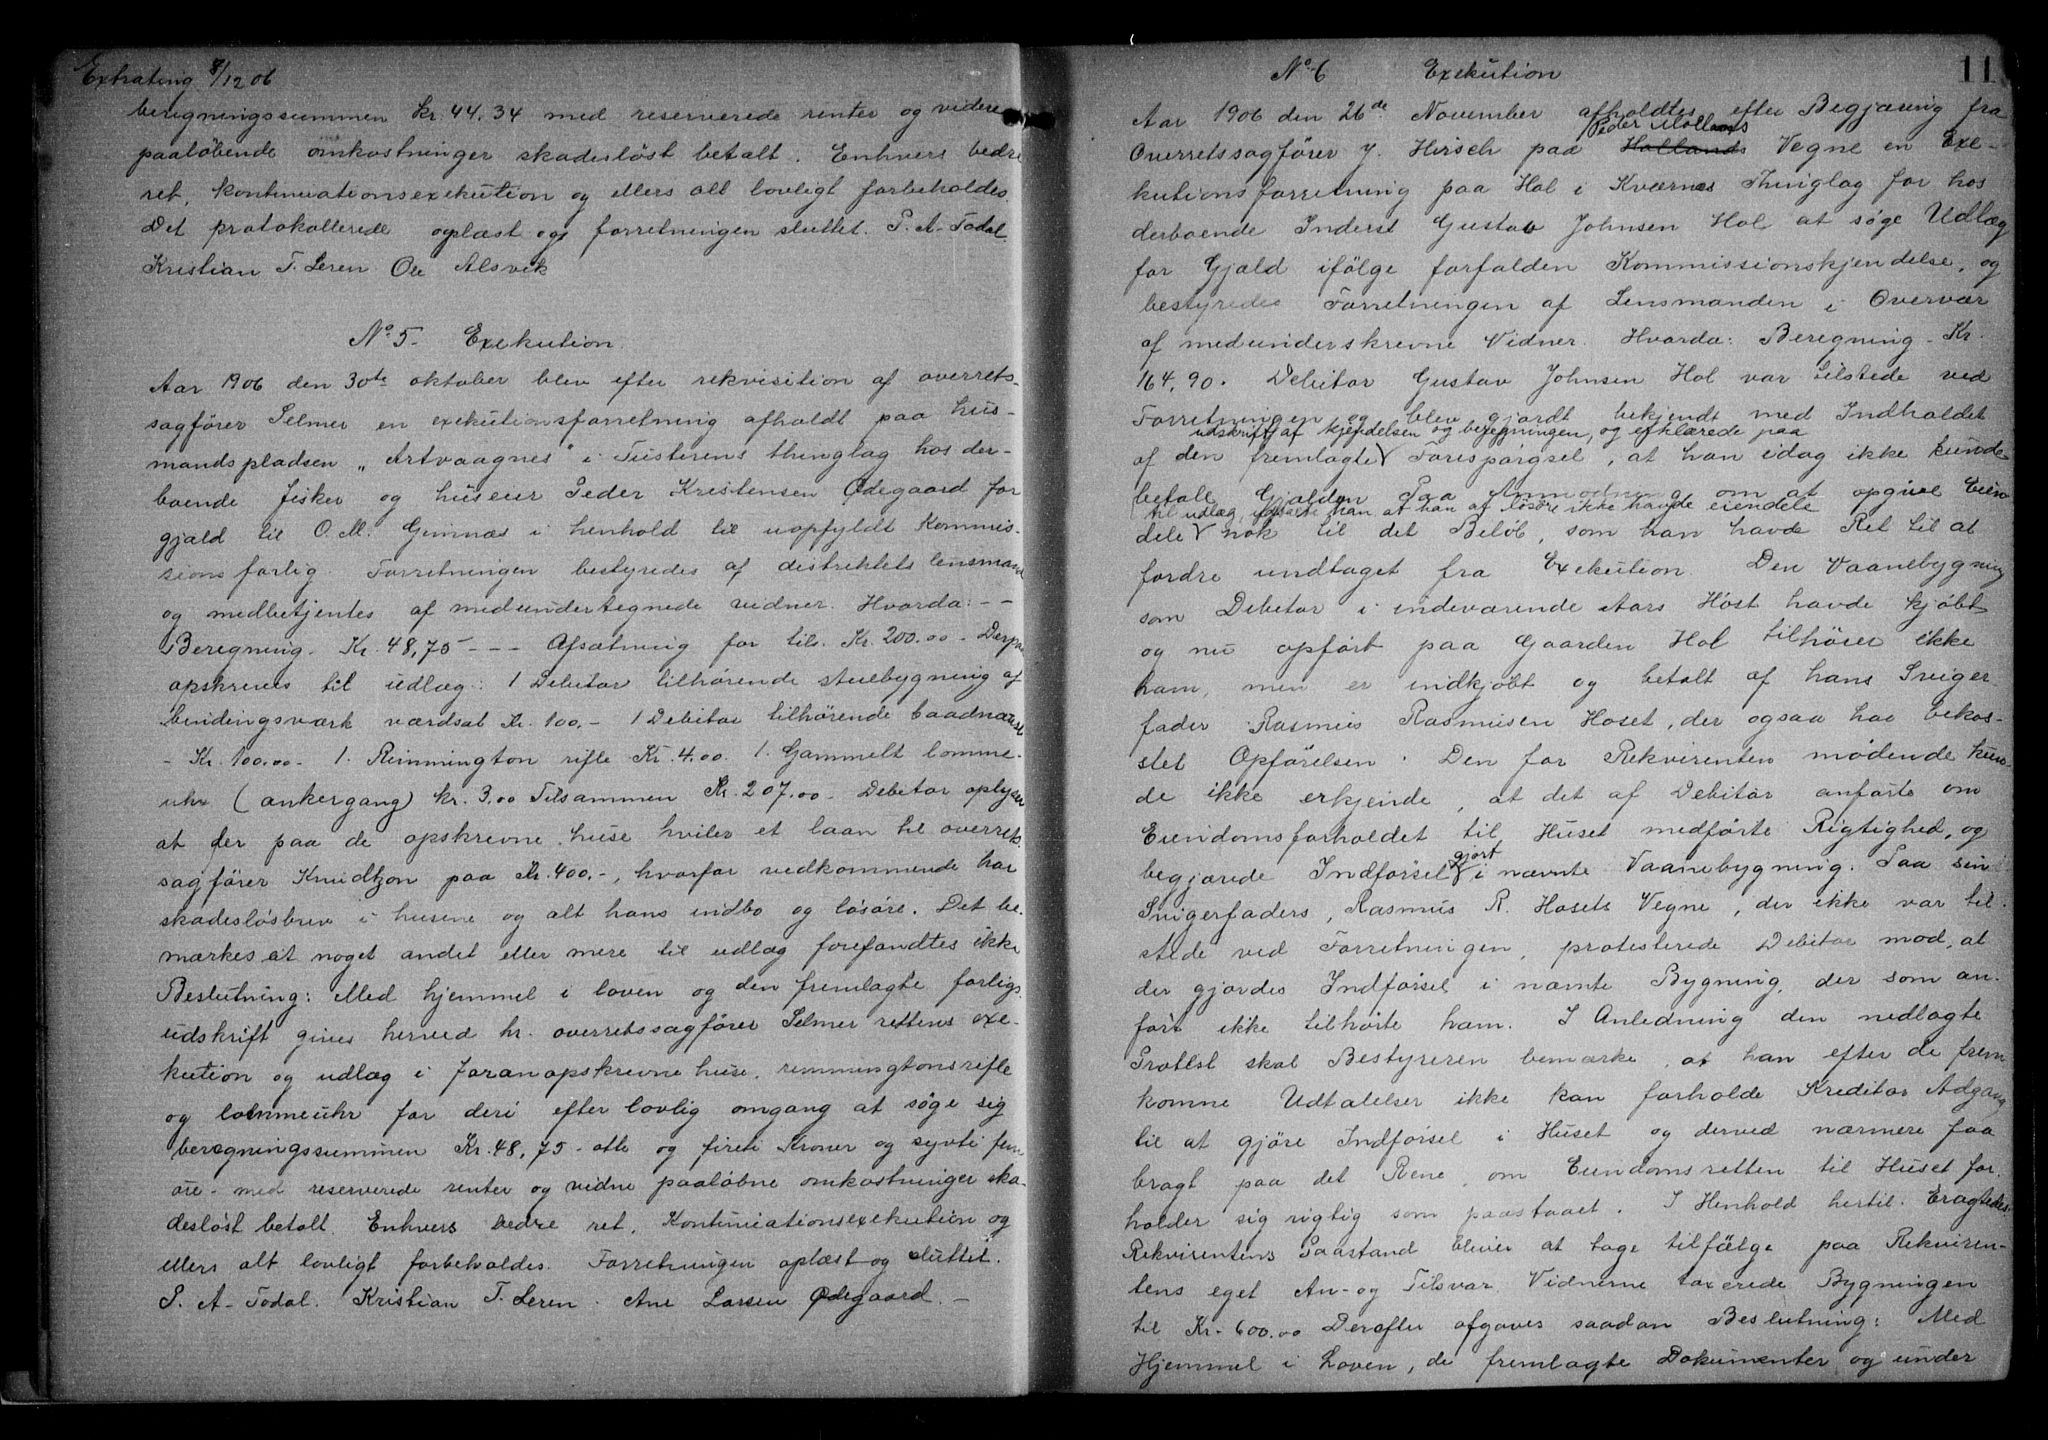 Extrating 8/12 06
beregningssummen kr. 44.34 med reserverede renter og videre
paaløbende omkostninger skadesløst betalt. Enhvers bedre
ret, kontinuationsexekution og ellers alt lovligt forbeholdes.
Det protokollerede oplæst og forretningen sluttet. P. A. Todal.
Kristian T. Leren Ole Alsvik
No 5. Exekution.
Aar 1906 den 30te oktober blev efter rekvisition af overrets-
sagfører Selmer en exekutionsforretning afholdt paa hus-
mandspladsen „Artvaagnes" i Tusterens thinglag hos der-
boende fisker og huseier Peder Kristensen Ødegaard for
gjæld til O. M. Gimnæs i henhold til uopfyldt Kommis-
sionsforlig. Forretningen bestyredes af distriktets lensmand
og medbetjentes af medundertegnede vidner. Hvorda: - -
Beregning. Kr. 48,75 - - - Afsætning for tils. Kr. 200.00 - Derpaa
opskreves til udlæg: 1 Debitor tilhørende stuebygning af
bindingsværk værdsat Kr. 100,- 1 Debitor tilhørende baadnaust
- Kr. 100.00 - 1. Rimmington rifle Kr. 4.00. 1. Gammelt lomme-
uhr (ankergang) kr. 3.00 Tilsammen Kr. 207.00 - Debitor oplyser
at der paa de opskrevne huse hviler et laan til overrets-
sagfører Knudtzon paa Kr. 400.-, hvorfor vedkommende har
skadesløsbrev i husene og alt hans indbo og løsøre. Det be-
mærkes at noget andet eller mere til udlæg forefandtes ikke
Beslutning: Med hjemmel i loven og den fremlagte forligs-
udskrift gives herved hr. overretssagfører Selmer rettens exe-
kution og udlæg i foranopskrevne huse, remmingtonsrifle
og lommeuhr for deri efter lovlig omgang at søge sig
beregningssummen Kr. 48,75 - otte og fireti Kroner og sytti fem
øre - med reserverede renter og vidne paaløbne omkostninger ska-
desløst betalt. Enhvers bedre ret, Kontinuationsexekution og
ellers alt lovligt forbeholdes. Forretningen oplæst og sluttet.
P. A. Todal. Kristian T. Leren. Ane Larsen Ødegaard. -
No 6 Exekution 11
Aar 1906 den 26de November afholdtes efter Begjæring fra
Peder Møllands
Overretssagfører J. Hirsch paa Hollands Vegne en Exe-
kutionsforretning paa Hol i Kværnes Thinglag for hos
derboende Inderst Gustav Johnsen Hol at søge Udlæg
for Gjæld ifølge forfalden Kommissionskjendelse, og
bestyredes Forretningen af Lensmanden i Overvær
af medunderskrevne Vidner. Hvorda: Beregning - Kr.
164,90. Debitor Gustav Johnsen Hol var tilstede ved
Forretningen og blev gjordt bekjendt med Indholdet
udskrift af kjendelsen og beregningen, og erklærede paa
af den fremlagte Forespørgsel, at han idag ikke kunde
betale Gjælden. Paa Anmodning om at opgive Eien-
til udlæg, han at han af løsøre ikke havde eiendele
dele nok til det Beløb, som han havde Ret til at
fordre undtaget fra Exekution. Den Vaanebygning
som Debitor i indeværende Aars Høst havde kjøbt
og nu opført paa Gaarden Hol tilhører ikke
ham, men er indkjøbt og betalt af hans Sviger-
fader Rasmus Rasmusen Hoset, der ogsaa har bekos-
stet Opførelsen. Den for Rekvirenten mødende kun-
de ikke erkjende, at det af Debitor anførte om
Eiendomsforholdet til Huset medførte Rigtighed, og
gjort
begjærede Indførsel i nævnte Vaanebygning. Paa sin
Svigerfaders, Rasmus R. Hosets Vegne, der ikke var til-
stede ved Forretningen, protesterede Debitor mod, at
der gjordes Indførsel i nævnte Bygning, der som an-
ført ikke tilhørte ham. I Anledning den nedlagte
Protest skal Bestyreren bemærke, at han efter de frem-
komne Udtalelser ikke kan forholde Kreditor Adgang
til at gjøre Indførsel i Huset og derved nærmere faa
bragt paa det Rene, om Eiendomsretten til Huset for-
holder sig rigtig som paastaaet. I Henhold hertil: Eragtedes
Rekvirentens Paastand bliver at tage tilfølge paa Rekviren-
tens eget An- og Tilsvar. Vidnerne taxerede Bygningen
til Kr. 600.00 Derefter afgaves saadan Beslutning: Med
Hjemmel i Loven, de fremlagte Dokumenter og under